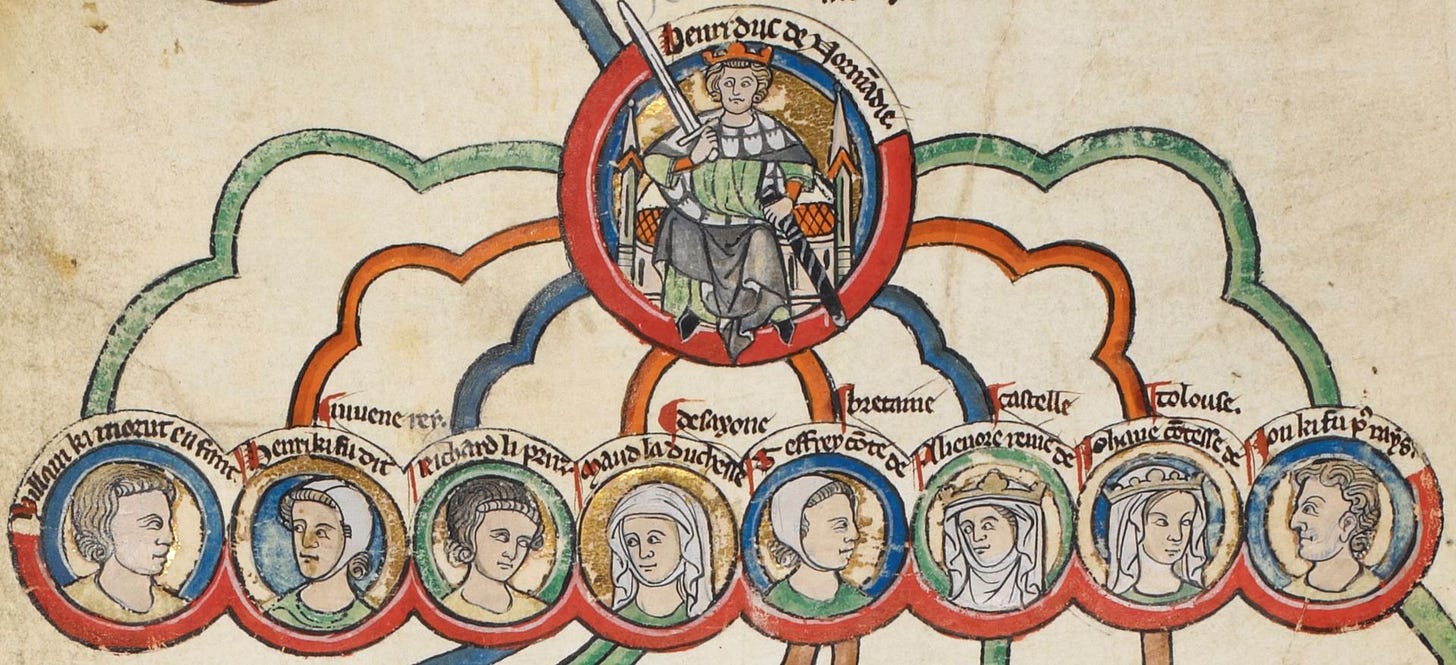 Henri duc de Normādie.
Willam ki morut enfant
Henri ki fu dit
iuuene rey.
Richard li prim
Maud la duchesse
de saxone
Geffrey cōte de
bretanie
Alienore reine de
castelle
Iohane cōtesse de
tolouse.
Ion ki fu pꝰ rays.